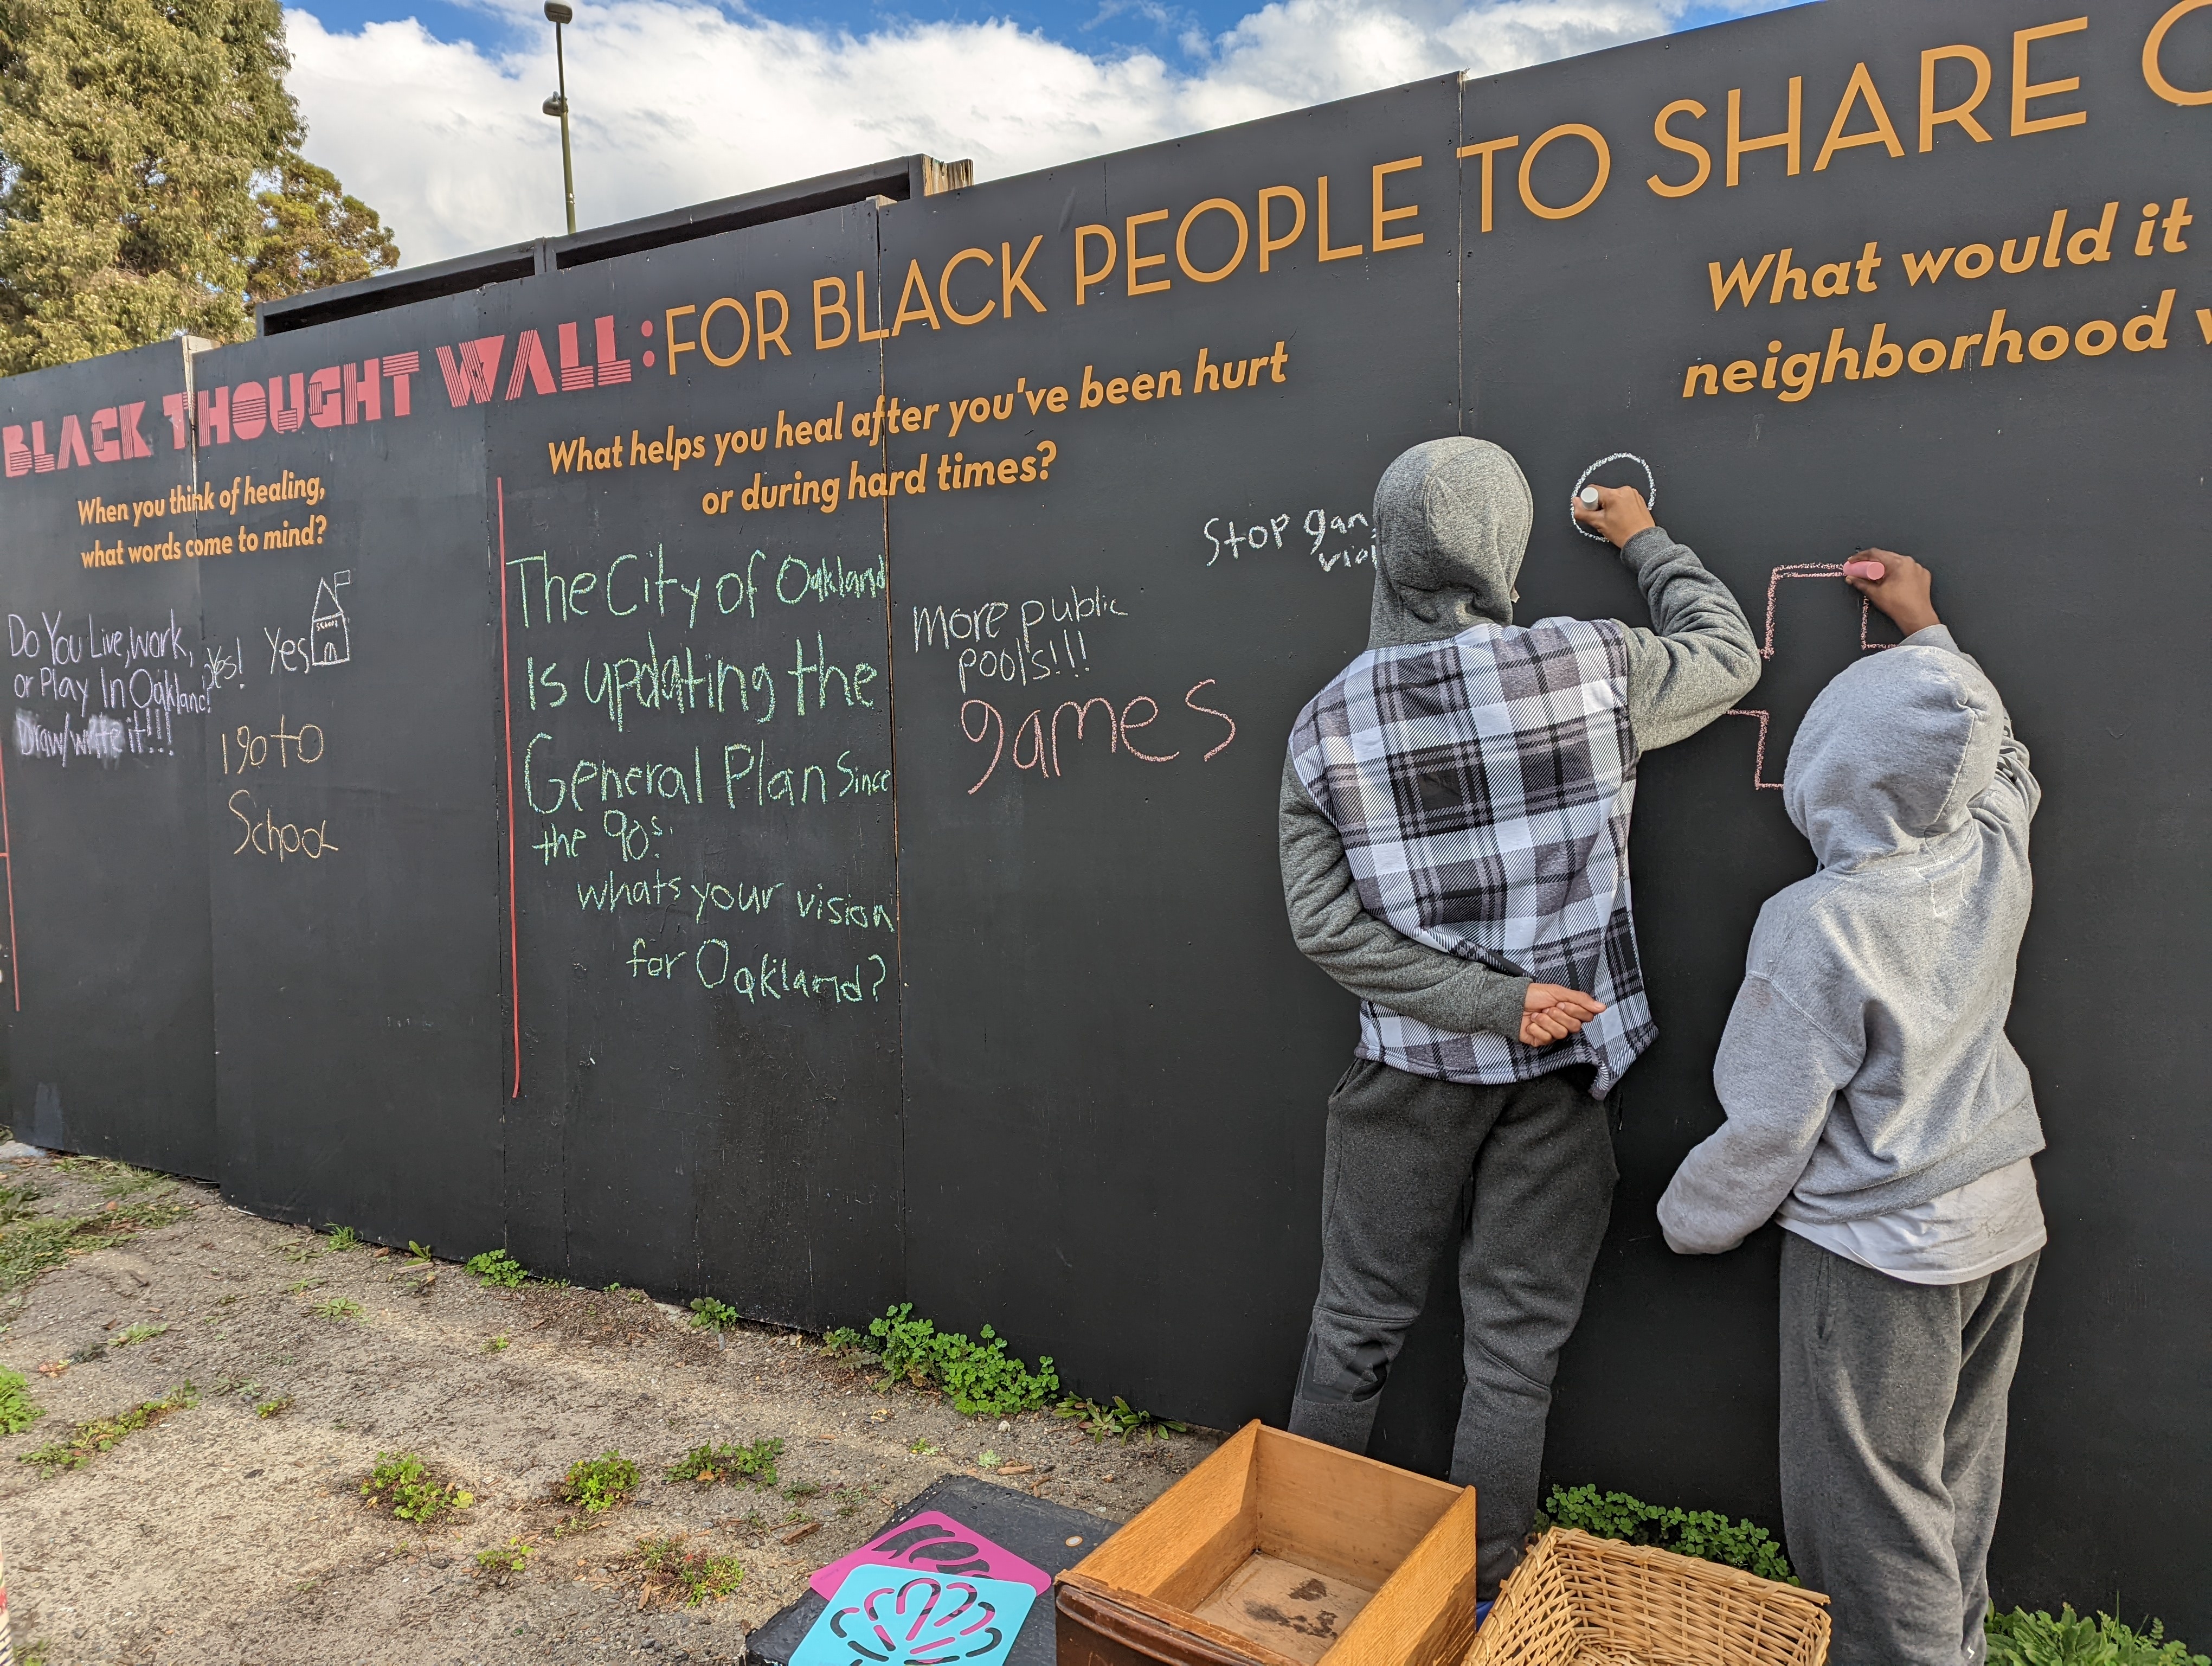 BLACK THOUGHT WALL: FOR BLACK PEOPLE TO SHARE
When you think of healing,
what words come to mind?
Do You Live, work,
or Play In Oakland?
Draw/write it!!!
Yes!
Yes
School
I go to
School
What helps you heal after you've been hurt
or during hard times?
The City of Oakland
Is updating the
General Plan Since
the 90s.
whats your vision
for Oakland?
More public
pools!!!
games
Stop
What would it
neighborhood